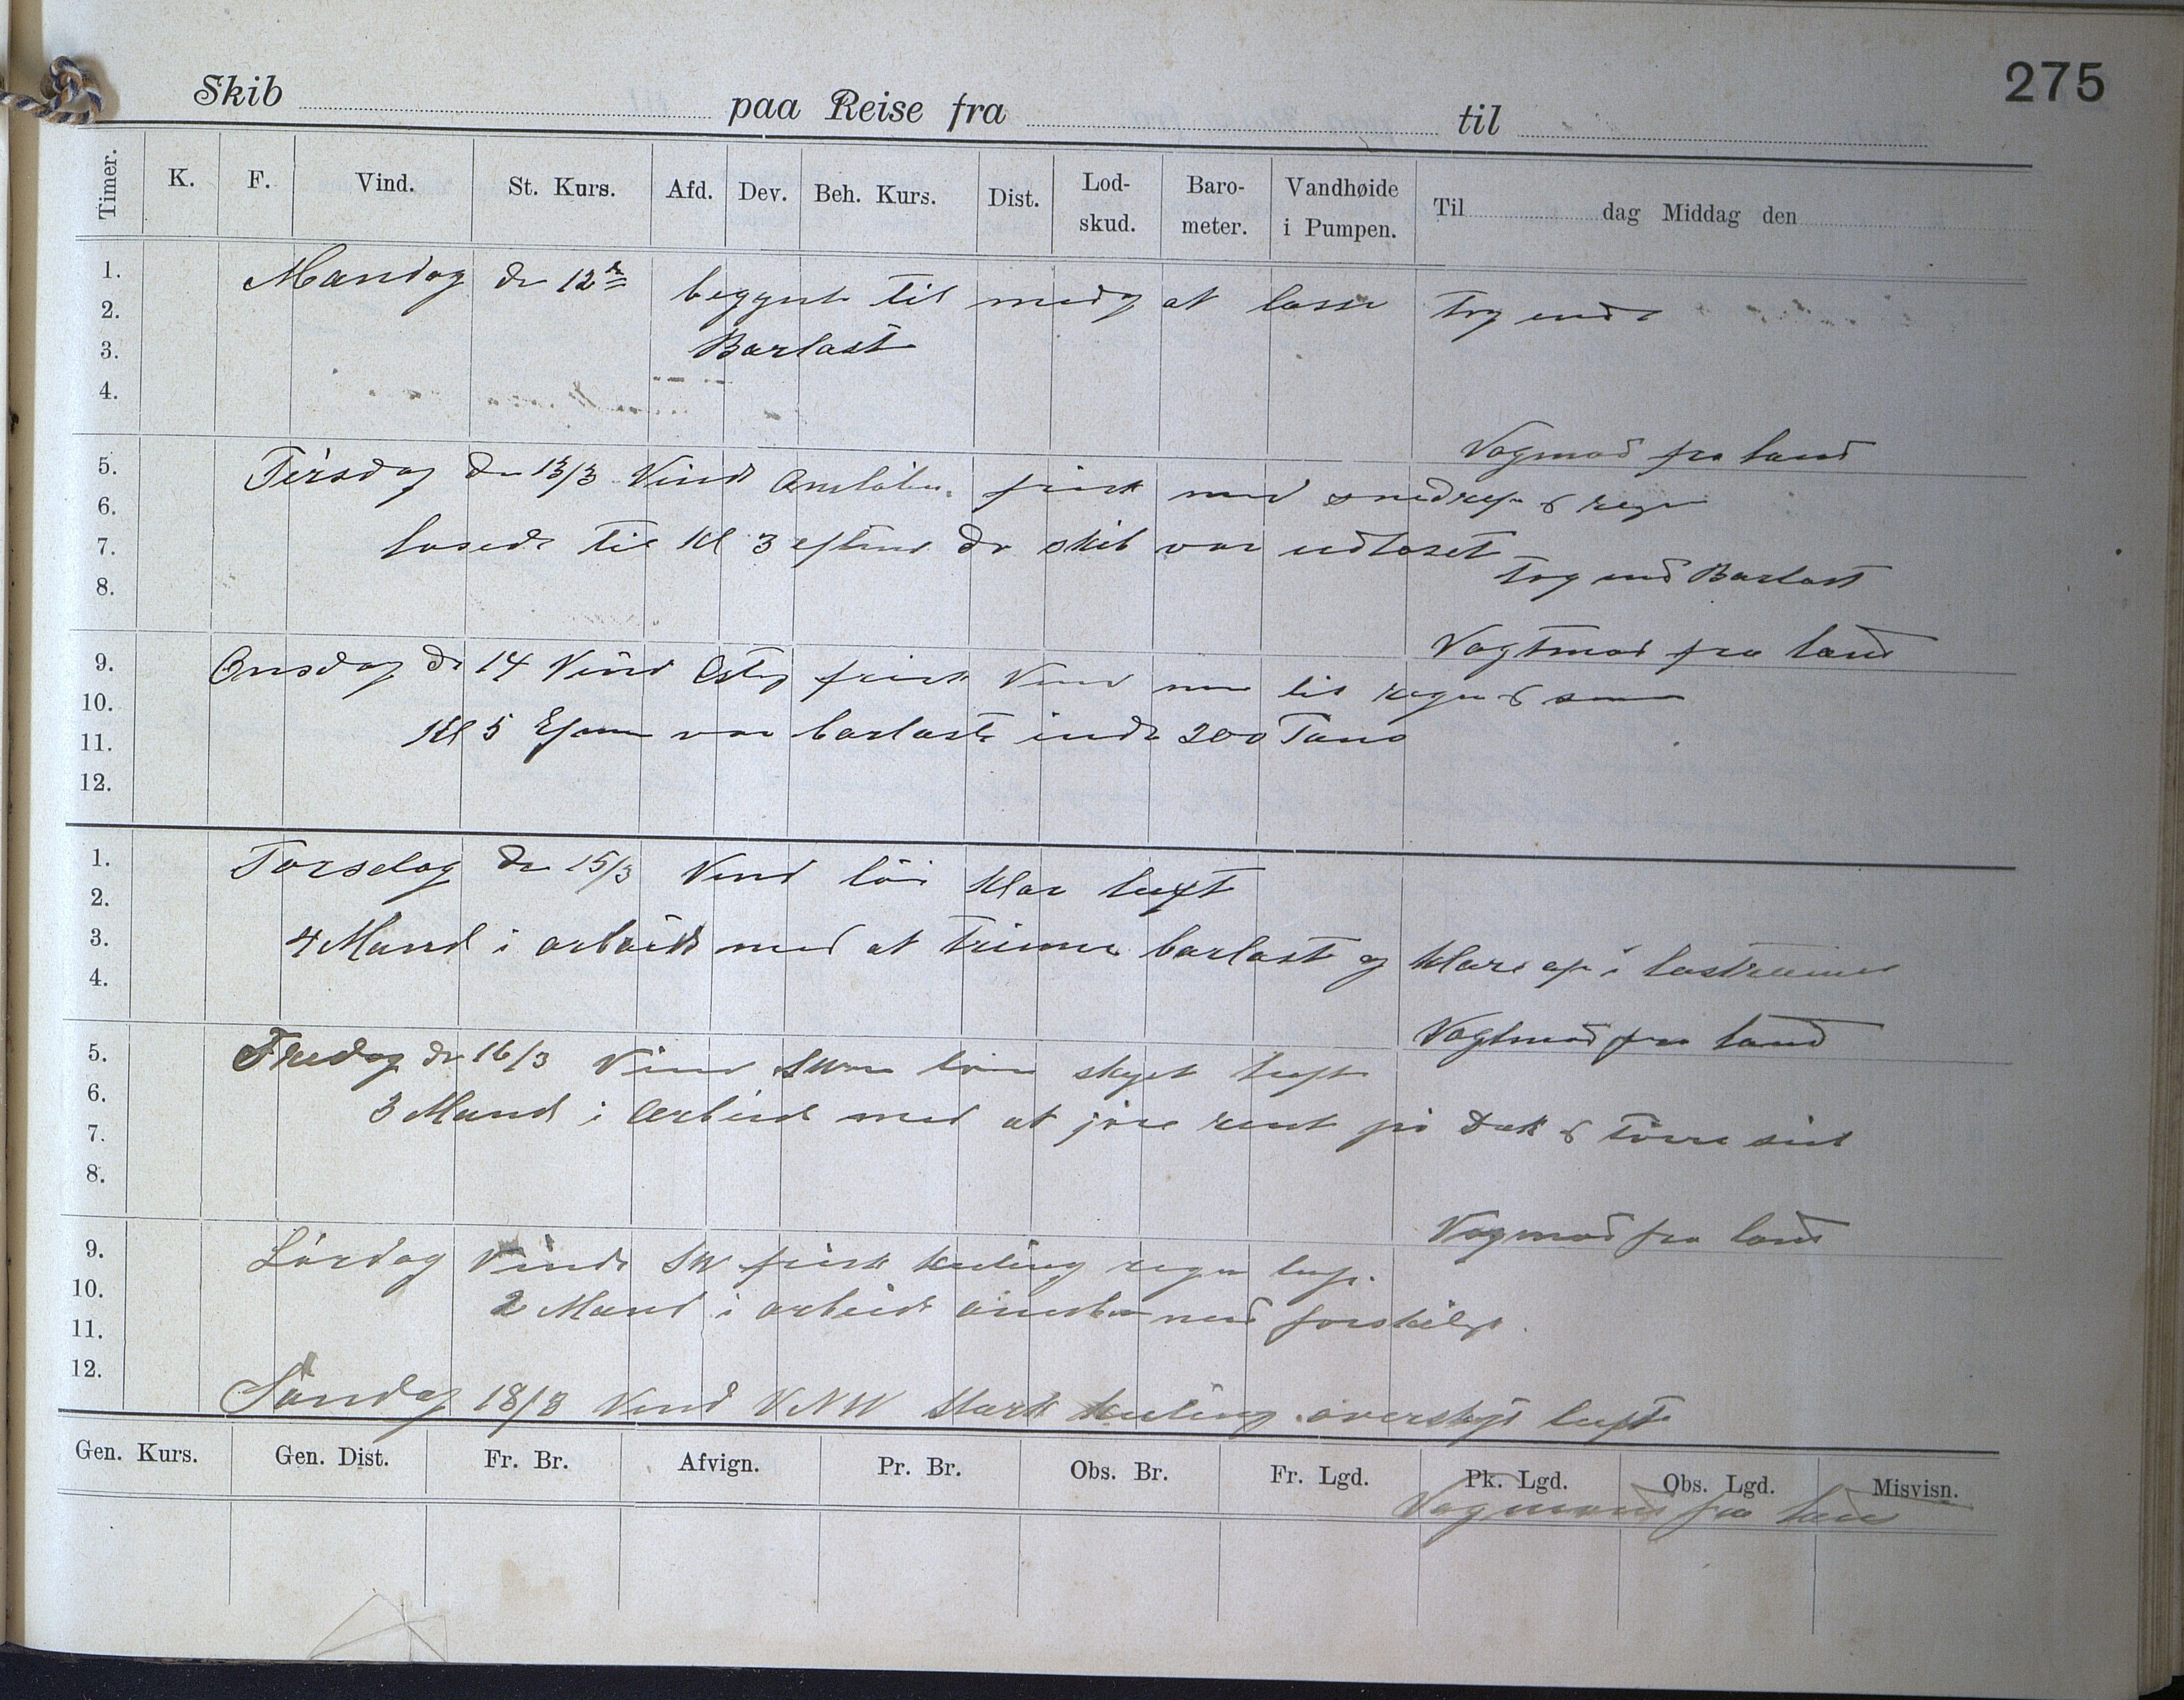 275
Skib paa Reise fra til
Timer. K. F. Vind. St. Kurs. Afd. Dev. Beh. Kurs. Dist. Lod-skud. Baro-meter. Vandhøide i Pumpen. Til dag Middag den
1.
2.
3.
4.
Mandag d 12te begynt til at losse tog inde
Barlast
Vagmad fra land
5.
6.
7.
8.
Tirsdag den 13/3 Vind frisk med & regn
losede til Kl 3 da skib var udloset
tog ind Barlast
Vagtmad fra land
9.
10.
11.
12.
Onsdag d 14 Vind Ostlig frisk Vind regn &
Kl 5 var barlast inde 200 Tons
1.
2.
3.
4.
Torsdag den 15/3 Vind löi klar luft
4 Mand i arbeide med at trimme barlast og klare op i lastrummet
Vagtmad fra land
5.
6.
7.
8.
Fredag d 16/3 Vind skyet luft
3 Mand i Arbeide med at jöre rent på Dæk & törre seil
Vagmad fra land
9.
10.
11.
12.
Lördag Vind SW frisk kuling regn luft
2 Mand i arbeide med
Söndag 18/3 Vind VNW Stærk kuling overskyt luft
Gen. Kurs. Gen. Dist. Fr. Br. Afvign. Pr. Br. Obs. Br. Fr. Lgd. Pk. Lgd. Obs. Lgd. Misvisn.
Vagmand fra land